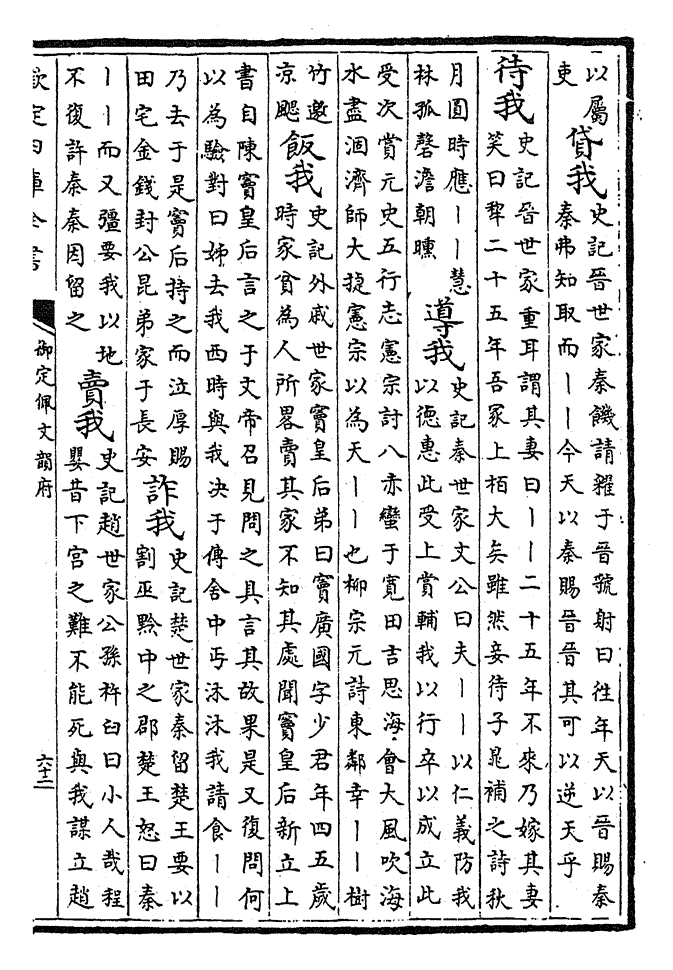 以屬
吏
貸我
史記晉世家秦饑請糴于晉虢射曰往年天以晉賜秦
秦弗知取而丨丨今天以秦賜晉晉其可以逆天乎
待我
史記晉世家重耳謂其妻曰丨丨二十五年不來乃嫁其妻
笑曰犂二十五年吾冢上栢大矣雖然妾待子晁補之詩秋
月圓時應丨丨慧
林孤磬澹朝曛
導我
史記秦世家文公曰夫丨丨以仁義防我
以德惠此受上賞輔我以行卒以成立此
受次賞元史五行志憲宗討八赤蠻于寛田吉思海會大風吹海
水盡涸濟師大捷憲宗以為天丨丨也柳宗元詩東鄰幸丨丨樹
竹邀
涼颸
飯我
史記外戚世家竇皇后弟曰竇廣國字少君年四五歲
時家貧為人所畧賣其家不知其處聞竇皇后新立上
書自陳竇皇后言之于文帝召見問之具言其故果是又復問何
以為驗對曰姊去我西時與我决于傳舍中丐沐沐我請食丨丨
乃去于是竇后持之而泣厚賜
田宅金錢封公昆弟家于長安
詐我
史記楚世家秦留楚王要以
割巫黔中之郡楚王怒曰秦
丨丨而又彊要我以地
不復許秦秦因留之
賣我
史記趙世家公孫杵臼曰小人哉程
嬰昔下宮之難不能死與我謀立趙
欽定四庫全書
御定佩文韻府
六十二